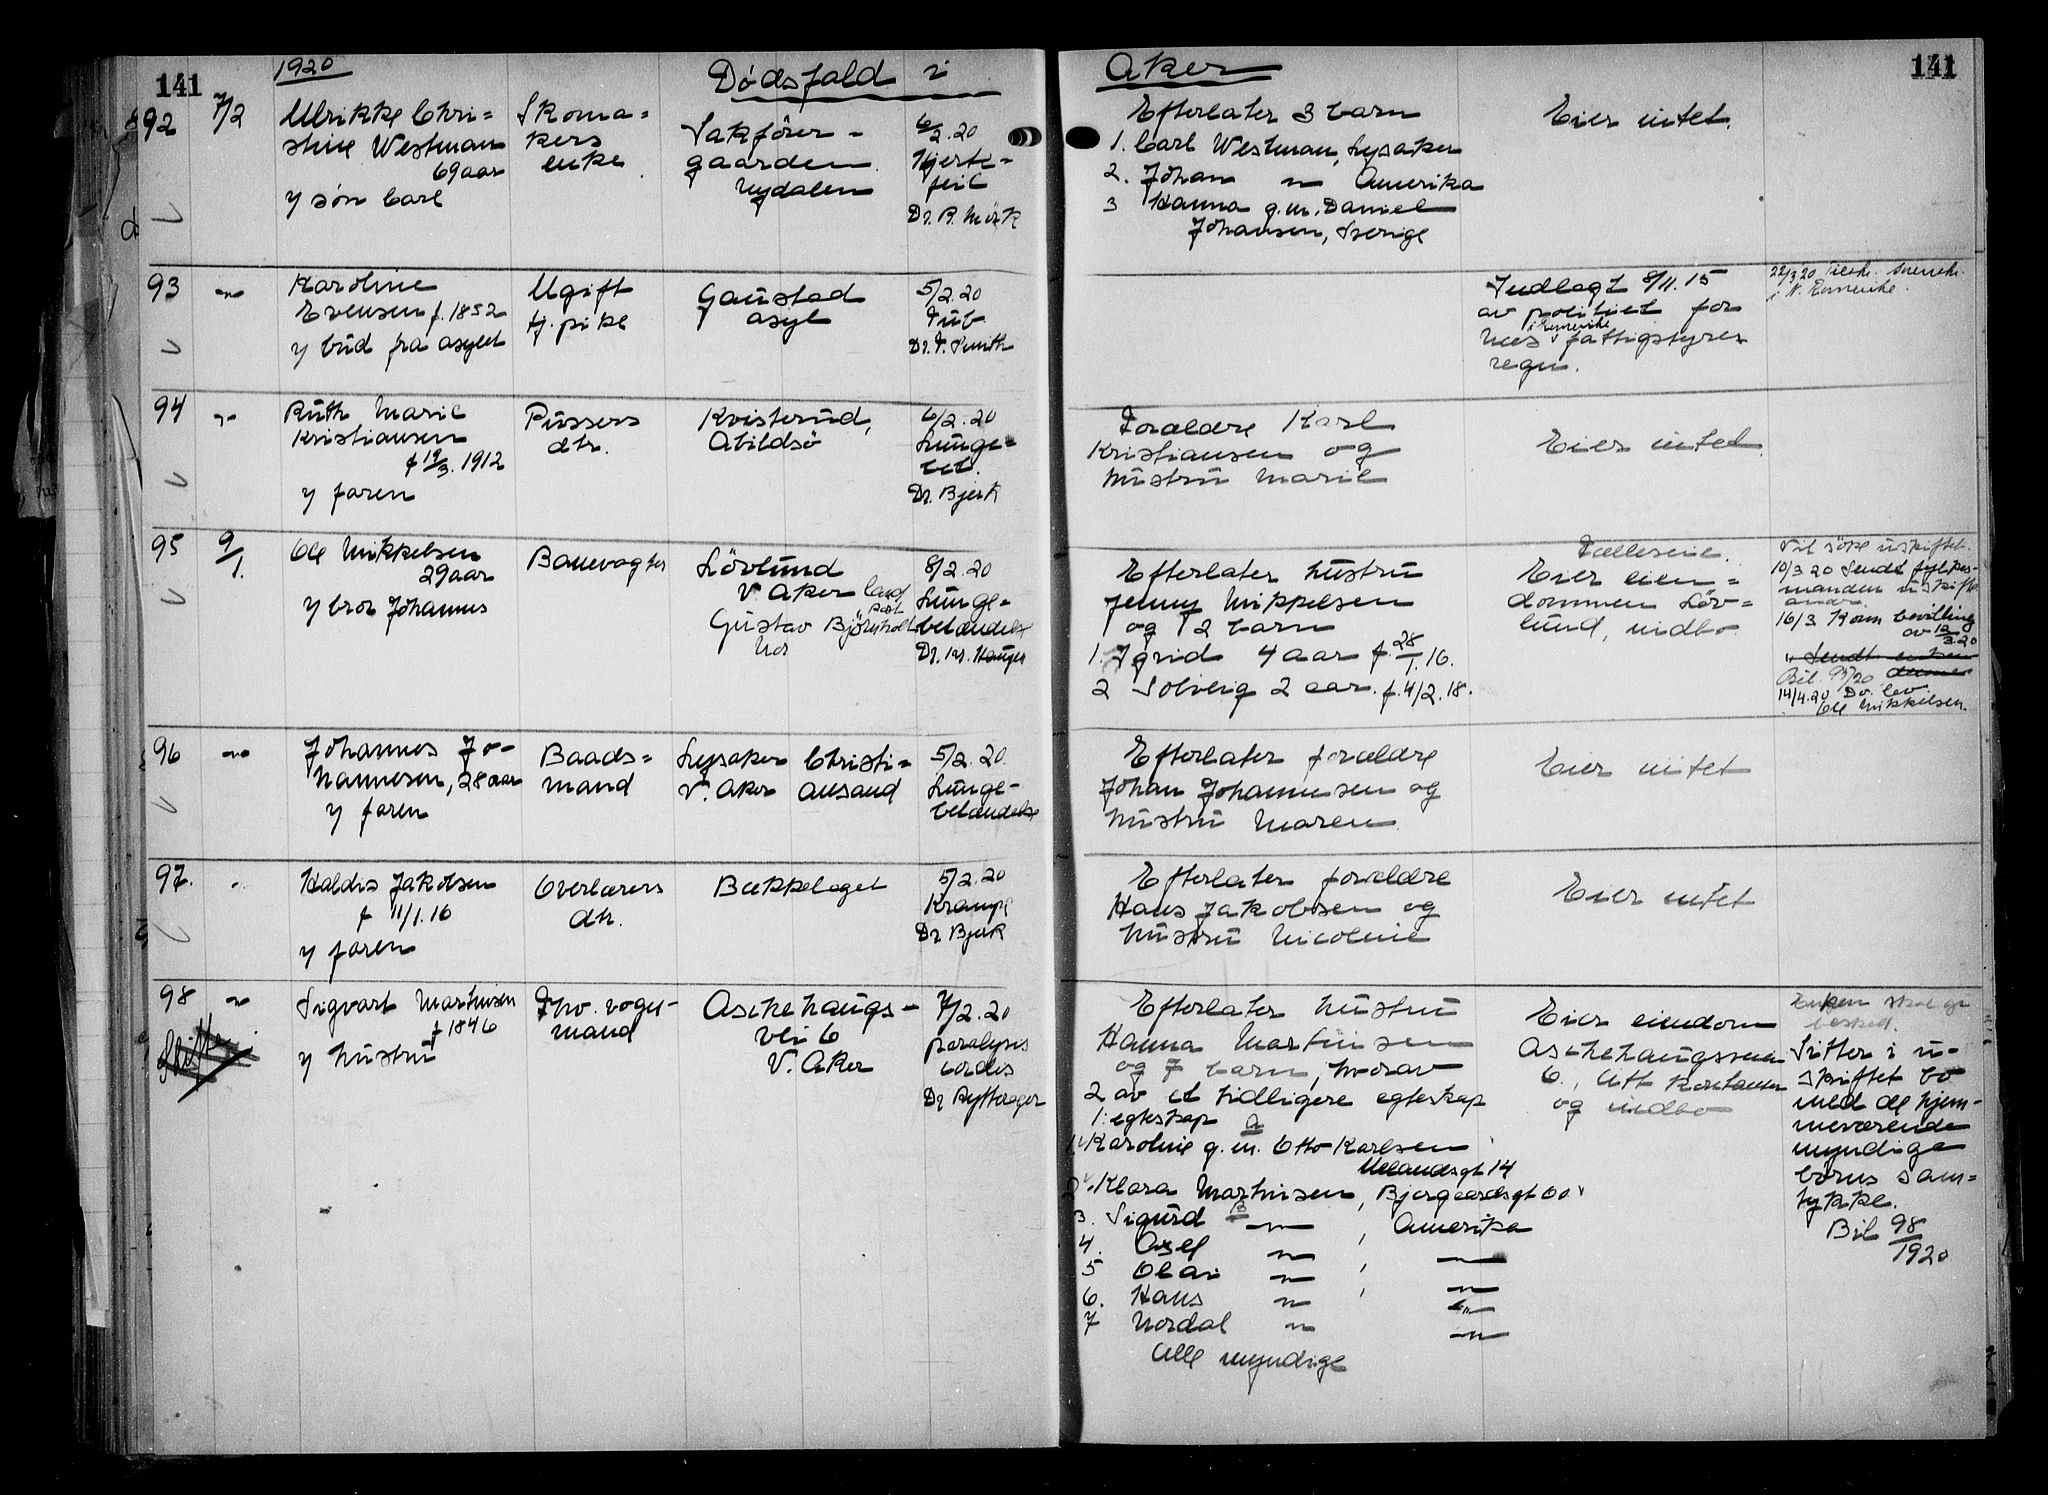 141
1920
Dødsfald i
Aker
141
92
7/2
Ulrikke Chri=
stine Westman
69 aar
v/ søn Carl
Skoma=
kers
enke
Sakfører-
gaarden
Nydalen
6/2.20
Hjerte-
feil
Dr. B. Mörk
Efterlater 3 barn
1. Carl Westman, Lysaker
2. Johan " Amerika
3 Hanna g.m. Daniel
Johansen, Sverige
Eier intet.
93
"
Karoline
Evensen f. 1852
v/ bud fra asylet
Ugift
tj. pike
Gaustad
asyl
5/2.20
Tub
Dr. F. Smith
Indlagt 8/11.15
av politiet for
i Romerike
Nes fattigstyres
regn.
22/3 20
i N. Romerike.
94
"
Ruth Marie
Kristiansen
f 19/3. 1912
v/ faren
Pussers
dtr.
Kvisterud,
Abildsö
6/2.20
Lunge-
bet.
Dr. Bjerk
Forældre Karl
Kristiansen og
hustru Marie
Eier intet
95
9/1.
Ole Mikkelsen
29 aar
v/ bror Johannes
Banevogter
Lövlund
V. Aker
Gustav Björnholt
8/2.20
Lunge-
betændelse
Dr. Kr. Hauger
Efterlater hustru
Jenny Mikkelsen
og 2 barn
1. Igrid 4 aar f. 28/1.16.
2 Solveig 2 aar. f. 4/2.18.
Fælleseie.
Eier eien=
dommen Löv=
lund, indbo
Vil söke uskiftet.
10/3 20 Sendt fylkes-
manden uskifte
andr.
16/3 Kom bevilling
av 12/3.20
Bil. 95/20
14/4.20 Do. lev.
Ole Mikkelsen.
96
"
Johannes Jo-
hannesen, 28 aar
v/ faren
Baads=
mand
Lysaker Christi=
V. Aker ansand
5/2.20.
Lunge-
betændelse
Efterlater forældre
Johan Johannesen og
hustru Maren
Eier intet
97.
"
Haldis Jakobsen
f 11/1.16
v/ faren
Overlærers
dtr.
Bækkelaget
5/2.20
Krampe
Dr Bjerk
Efterlater forældre
Hans Jakobsen og
hustru Nicoline
Eier intet
98
"
Sigvart Martinsen
f 1846
v/ hustru
Fhv. vogn-
mand
Aschehougs-
vei 6
V. Aker
7/2.20
paralysis
cordis
Dr Rytterager
Efterlater hustru
Hanna Martinsen
og 7 barn, hvorav
2 av et tidligere egteskap
1. egteskap A
1. Karoline g.m. Otto Karlsen
Uelandsgt 14
2. Klara Martinsen, Bjergaardsgt 60
3. Sigurd B " , Amerika
4. Axel " "
5 Olai " , "
6. Hans " , "
7 Nordal " "
Alle myndige
Eier eiendom
Aschehaugsveien
6., litt kontanter
og indbo
Enken skal gi
besked.
Sitter i u-
skiftet bo
med de hjem-
meværende
myndige
barns sam=
tykke.
Bil 98/1920